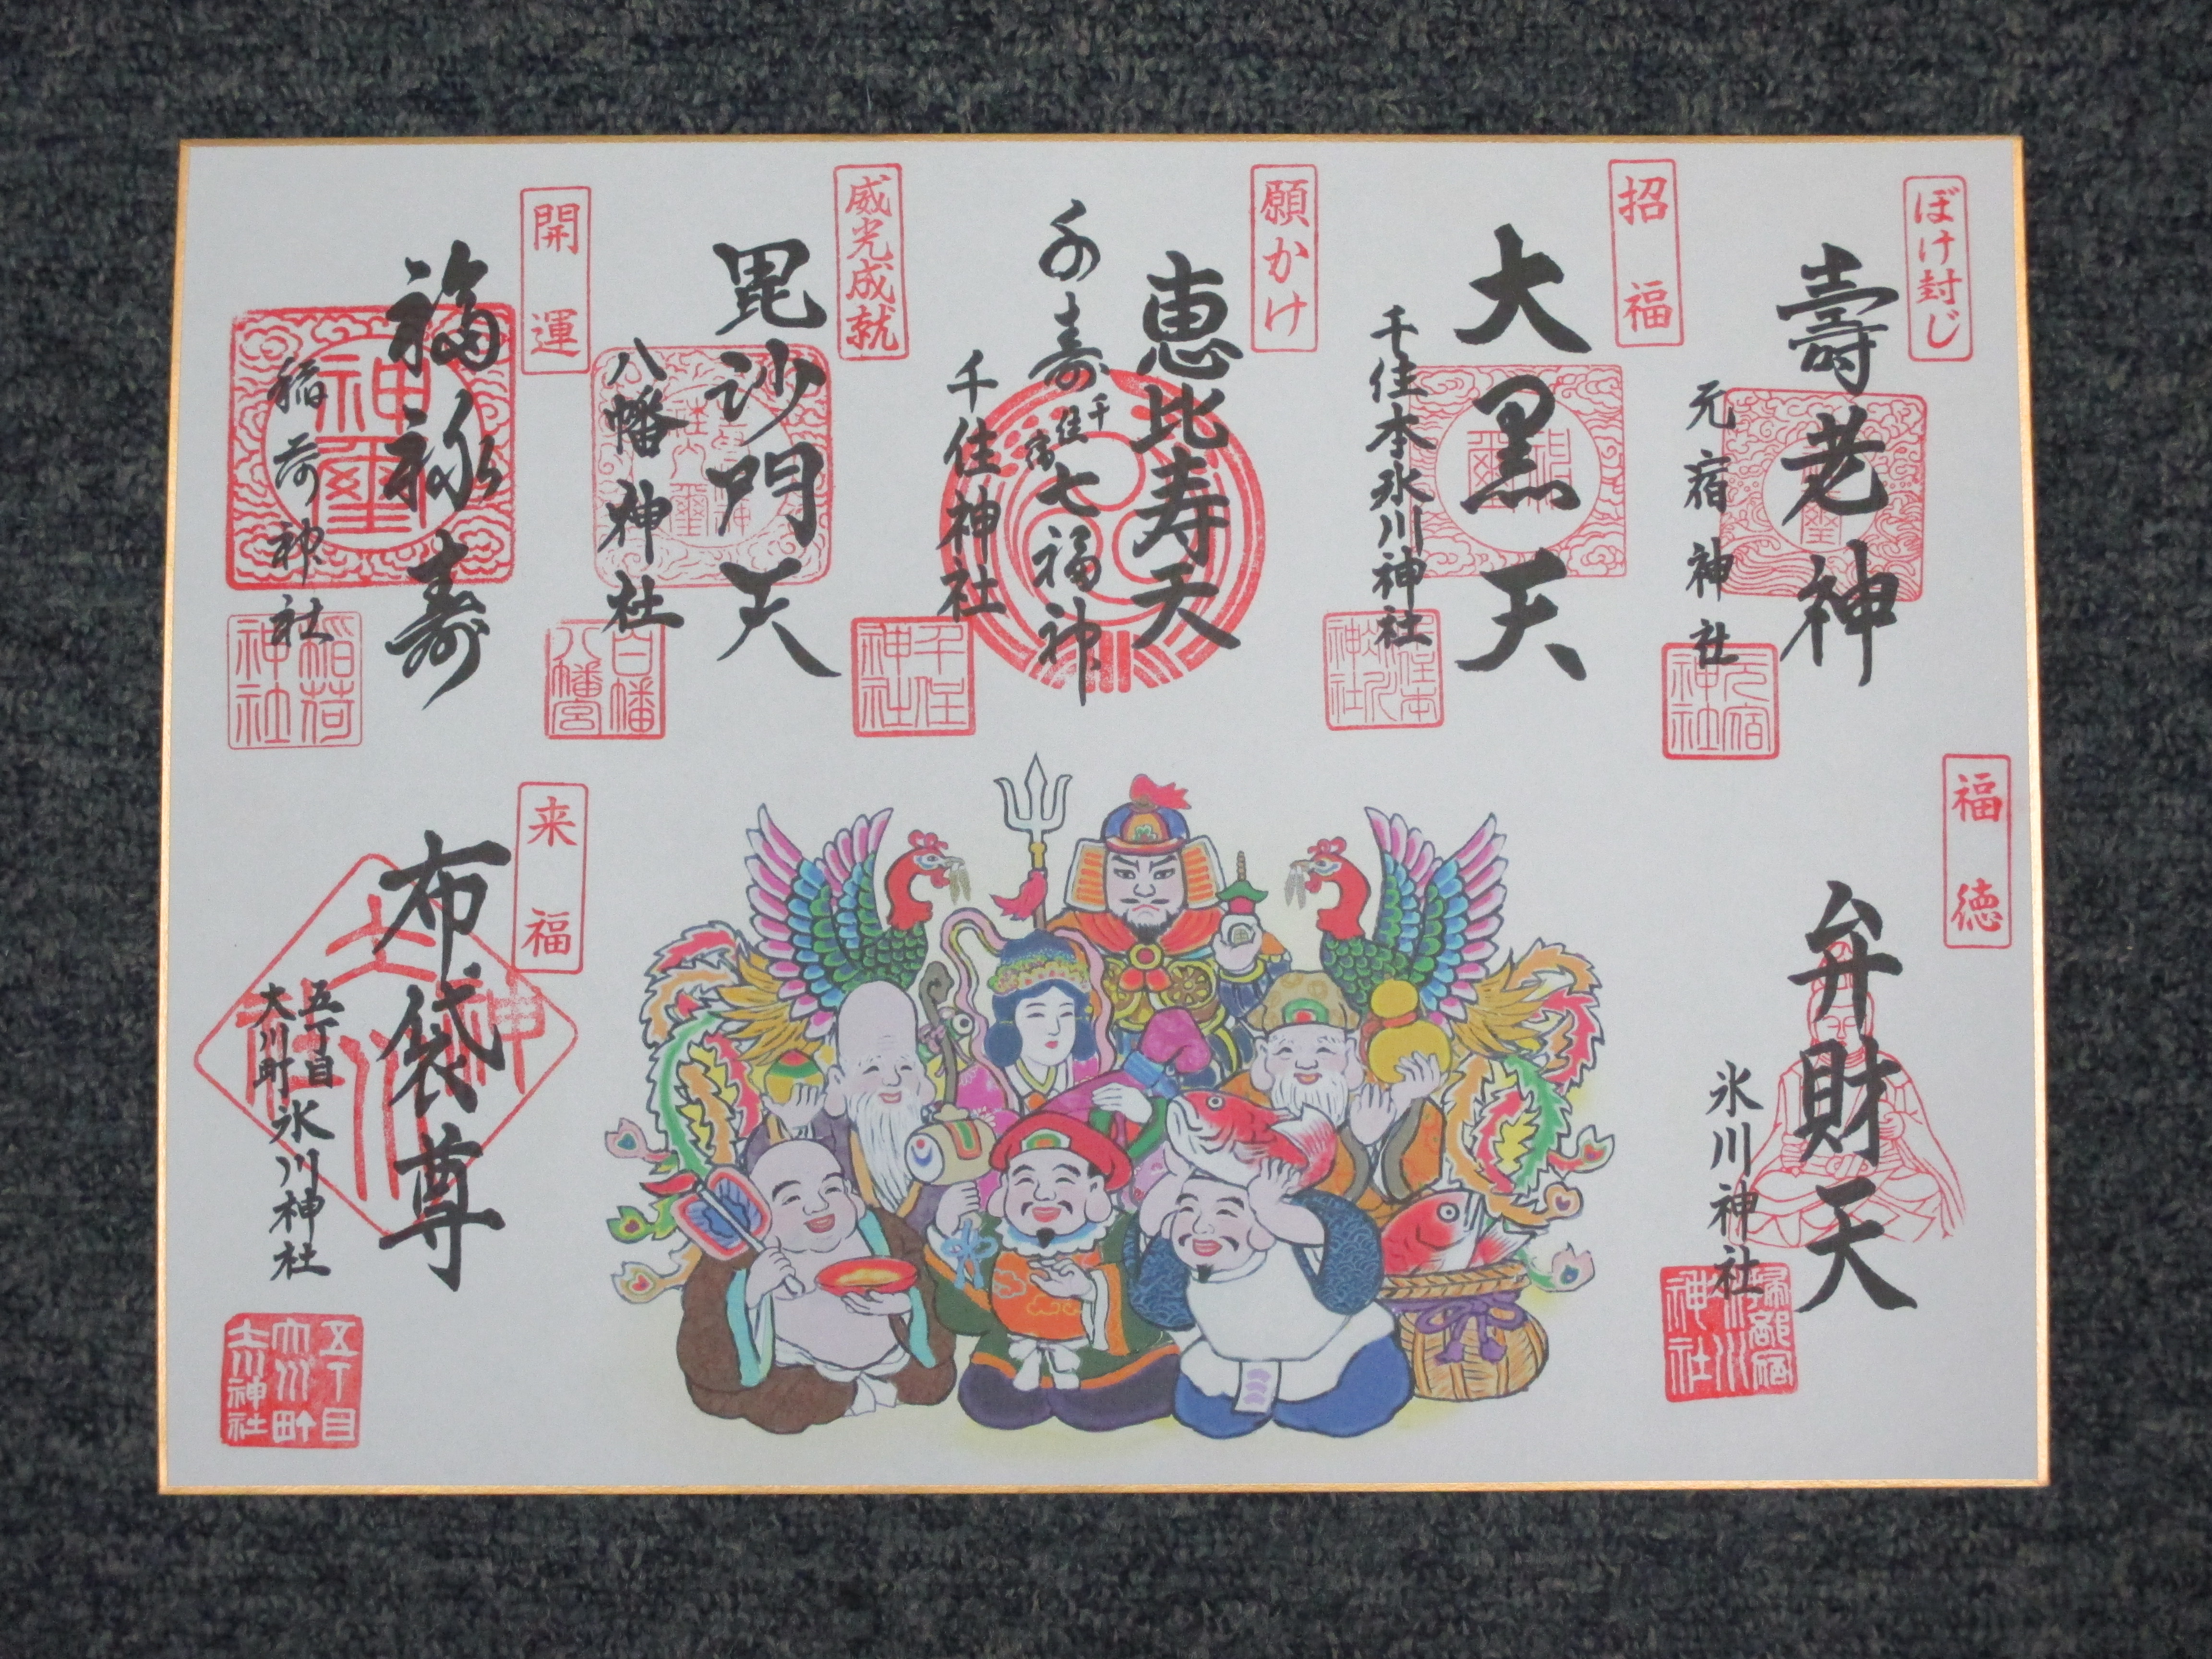 ぼけ封じ
壽老神
元宿神社
元宿神社
招福
大黒天
千住本氷川神社
願かけ
恵比寿天
千寿
千住宿
七福神
千住神社
千住神社
威光成就
毘沙門天
八幡神社
白幡八幡宮
開運
福禄寿
神璽
稲荷神社
稲荷神社
福徳
弁財天
氷川神社
来福
布袋尊
五丁目
大川町
氷川神社
五丁目
大川町
氷川神社